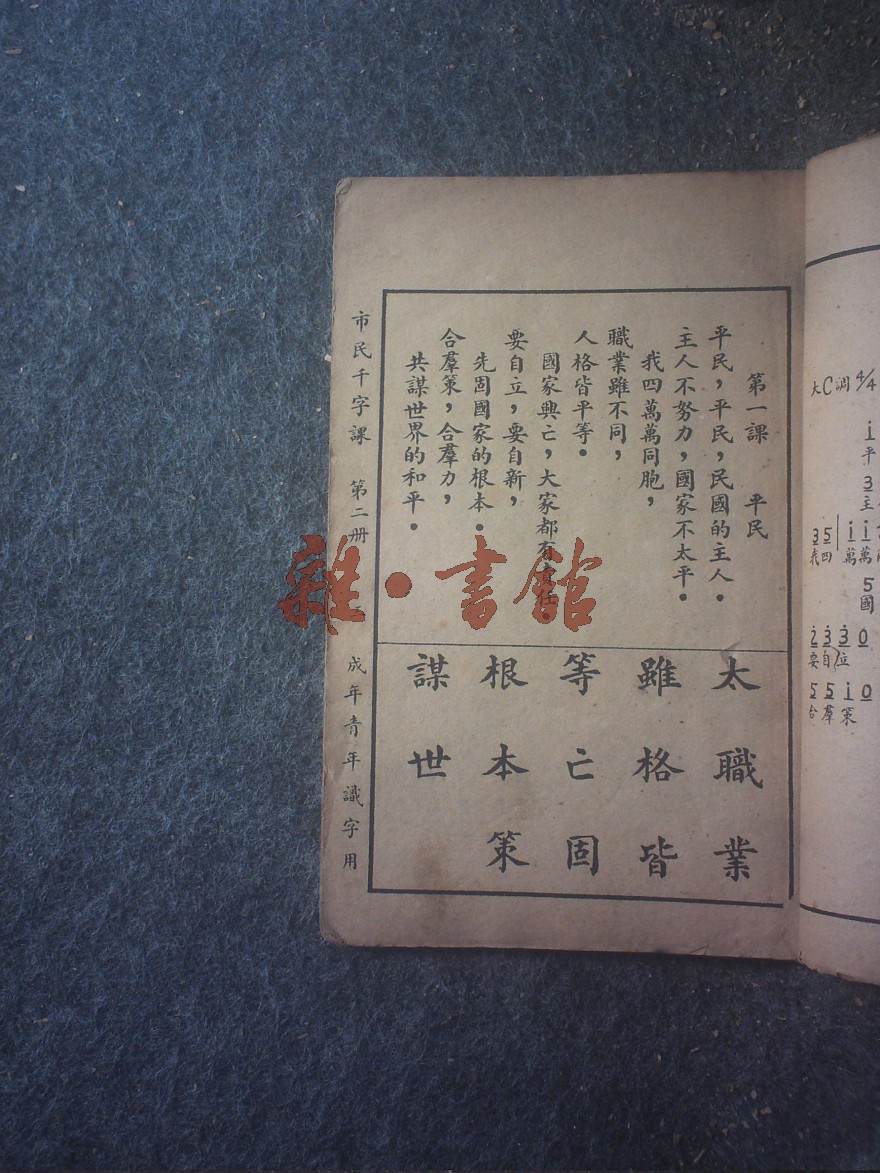 第一課　平民
平民，平民，民國的主人．
主人不努力，國家不太平．
我四萬萬同胞，
職業雖不同，
人格皆平等．
國家興亡，大家都有
要自立，要自新，
先固國家的根本．
合羣策，合羣力，
共謀世界的和平．
太職業
雖格皆
等亡固
根本策
謀世
市民千字課　第二册　成年青年識字用
大C調 4/4
i
平
3
主
3 5 | i i
我四 萬萬
5
國
2 3 3 0
要自位
5 5 i 0
合羣策
雜·書館